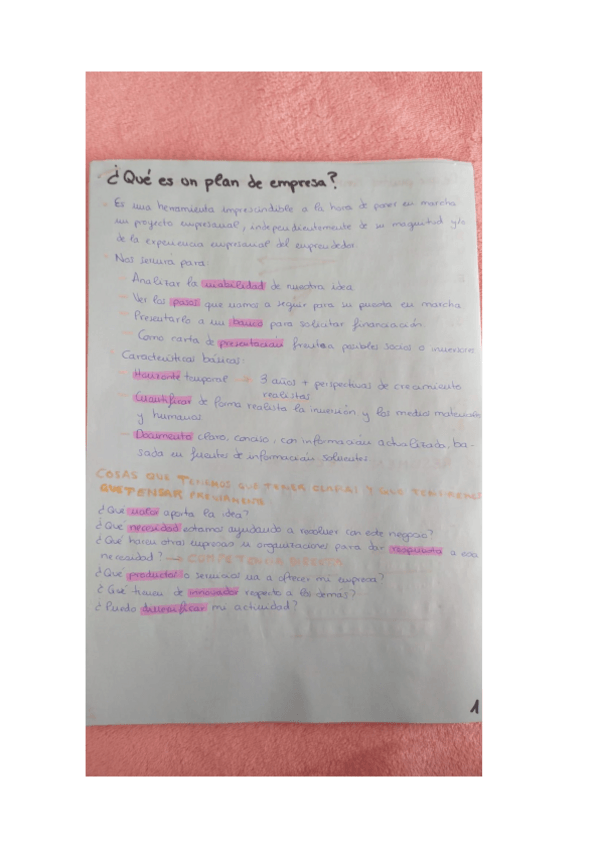 ¿Qué es un plan de empresa?
Es una herramienta imprescindible a la hora de poner en marcha
un proyecto empresarial, independientemente de su magnitud y/o
de la experiencia empresarial del emprendedor
Nos servirá para:
Analizar la viabilidad de nuestra idea
- Ver los pasos que vamos a seguir para su puesta en marcha
- Presentarlo a un banco para solicitar financiación
- Como carta de presentación frente a posibles socios o inversores
Características básicas:
- Horizonte temporal → 3 años + perspectivas de crecimiento
realistas
- Cuantificar de forma realista la inversión y los medios materiales
y humanos
- Documento claro, conciso, con información actualizada, ba-
sada en fuentes de información solventes
COSAS QUE TENEMOS QUE TENER CLARAS Y QUE TENDREMOS
QUE PENSAR PREVIAMENTE
¿Qué valor aporta la idea?
¿Qué necesidad estamos ayudando a resolver con este negocio?
¿Qué hacen otras empresas u organizaciones para dar respuesta a esa
necesidad? → COMPETENCIA DIRECTA
¿Qué productos o servicios va a ofrecer mi empresa?
¿Qué tienen de innovador respecto a los demás?
¿Puedo diversificar mi actividad?
1